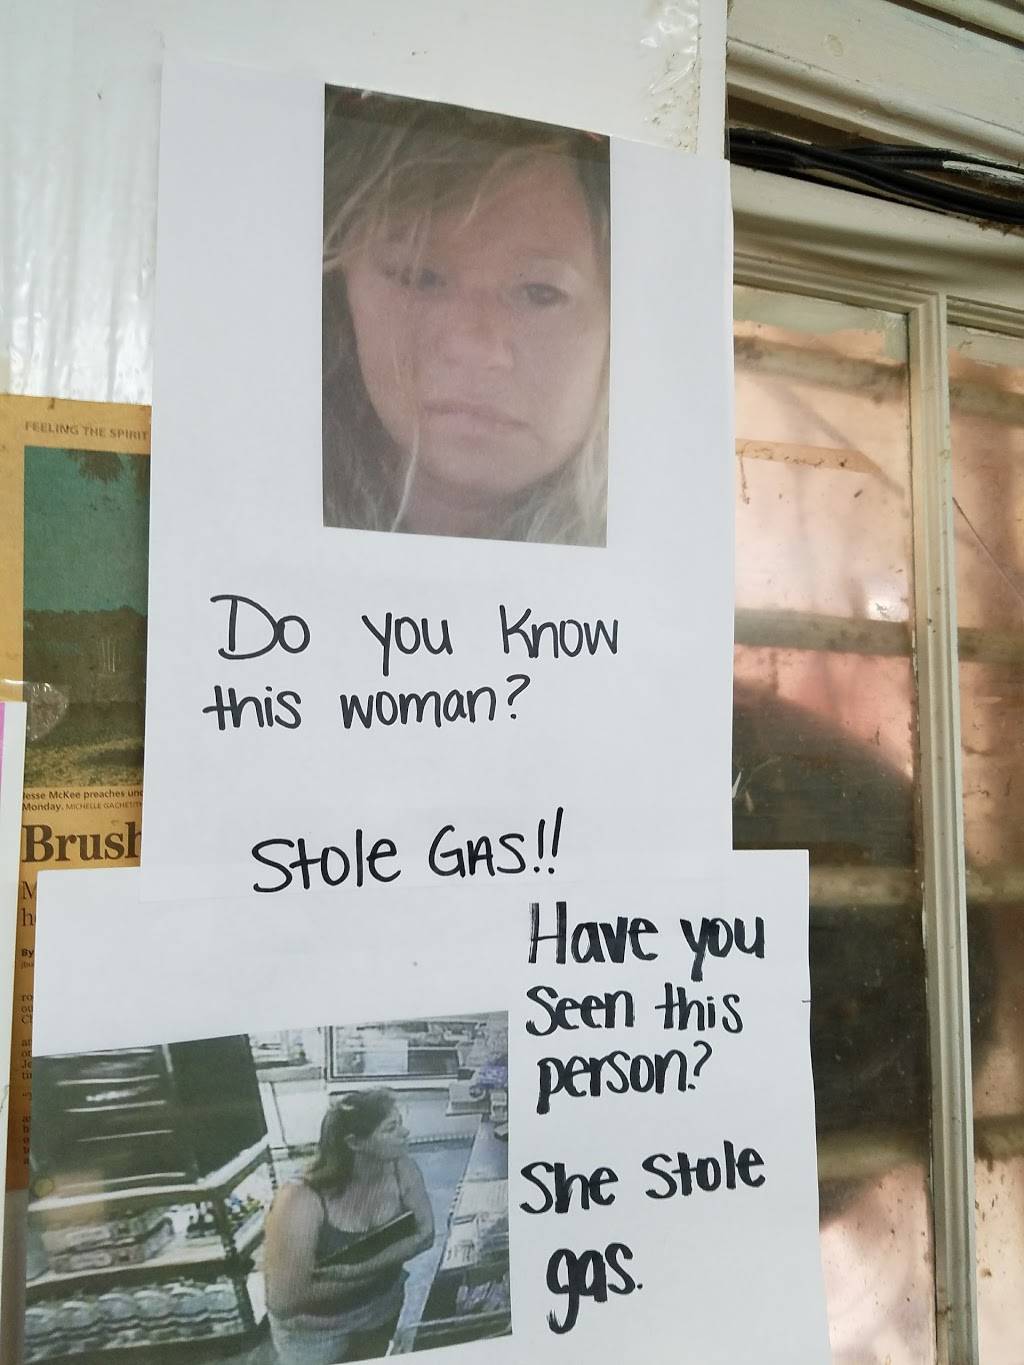 FEELING THE SPIRIT
Do you Know
this woman?
Stole GAS!!
Have you
Seen this
person?
She Stole
gas.
esse McKee preaches und
Monday. MICHELLE GACHET
Brush
By